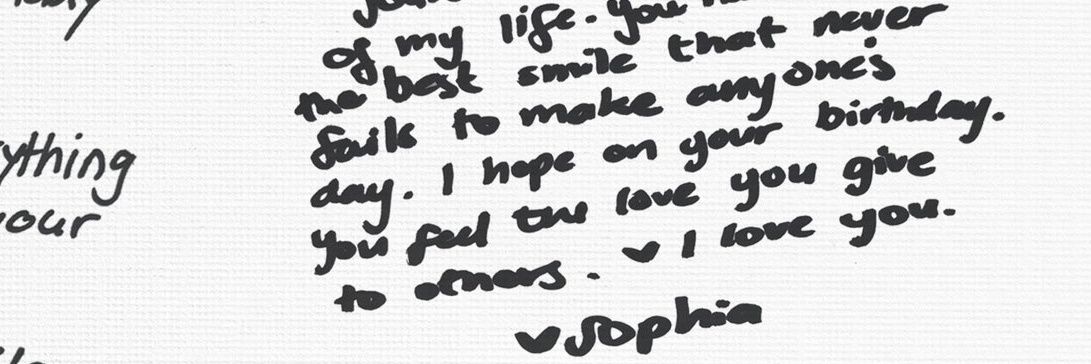 of my life. You
the best smile that never
fails to make anyone's
day. I hope on your birthday.
you feel the love you give
to others. ♥ I love you.
♥ Sophia
ything
your